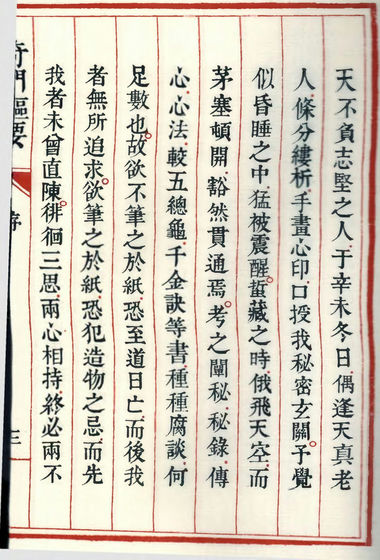 天不負志堅之人于辛未冬日偶逢天真老
人條分縷析手畫心印口授我秘密玄關予覺
似昏睡之中猛被震醒蜇藏之時俄飛天空而
茅塞頓開豁然貫通焉考之闡秘秘錄傳
心心法較五總龜千金訣等書種種腐談何
足數也故欲不筆之於紙恐至道日亡而後我
者無所追求欲筆之於紙恐犯造物之忌而先
我者未曾直陳徘徊三思兩心相持終必兩不
奇門樞要
序
三